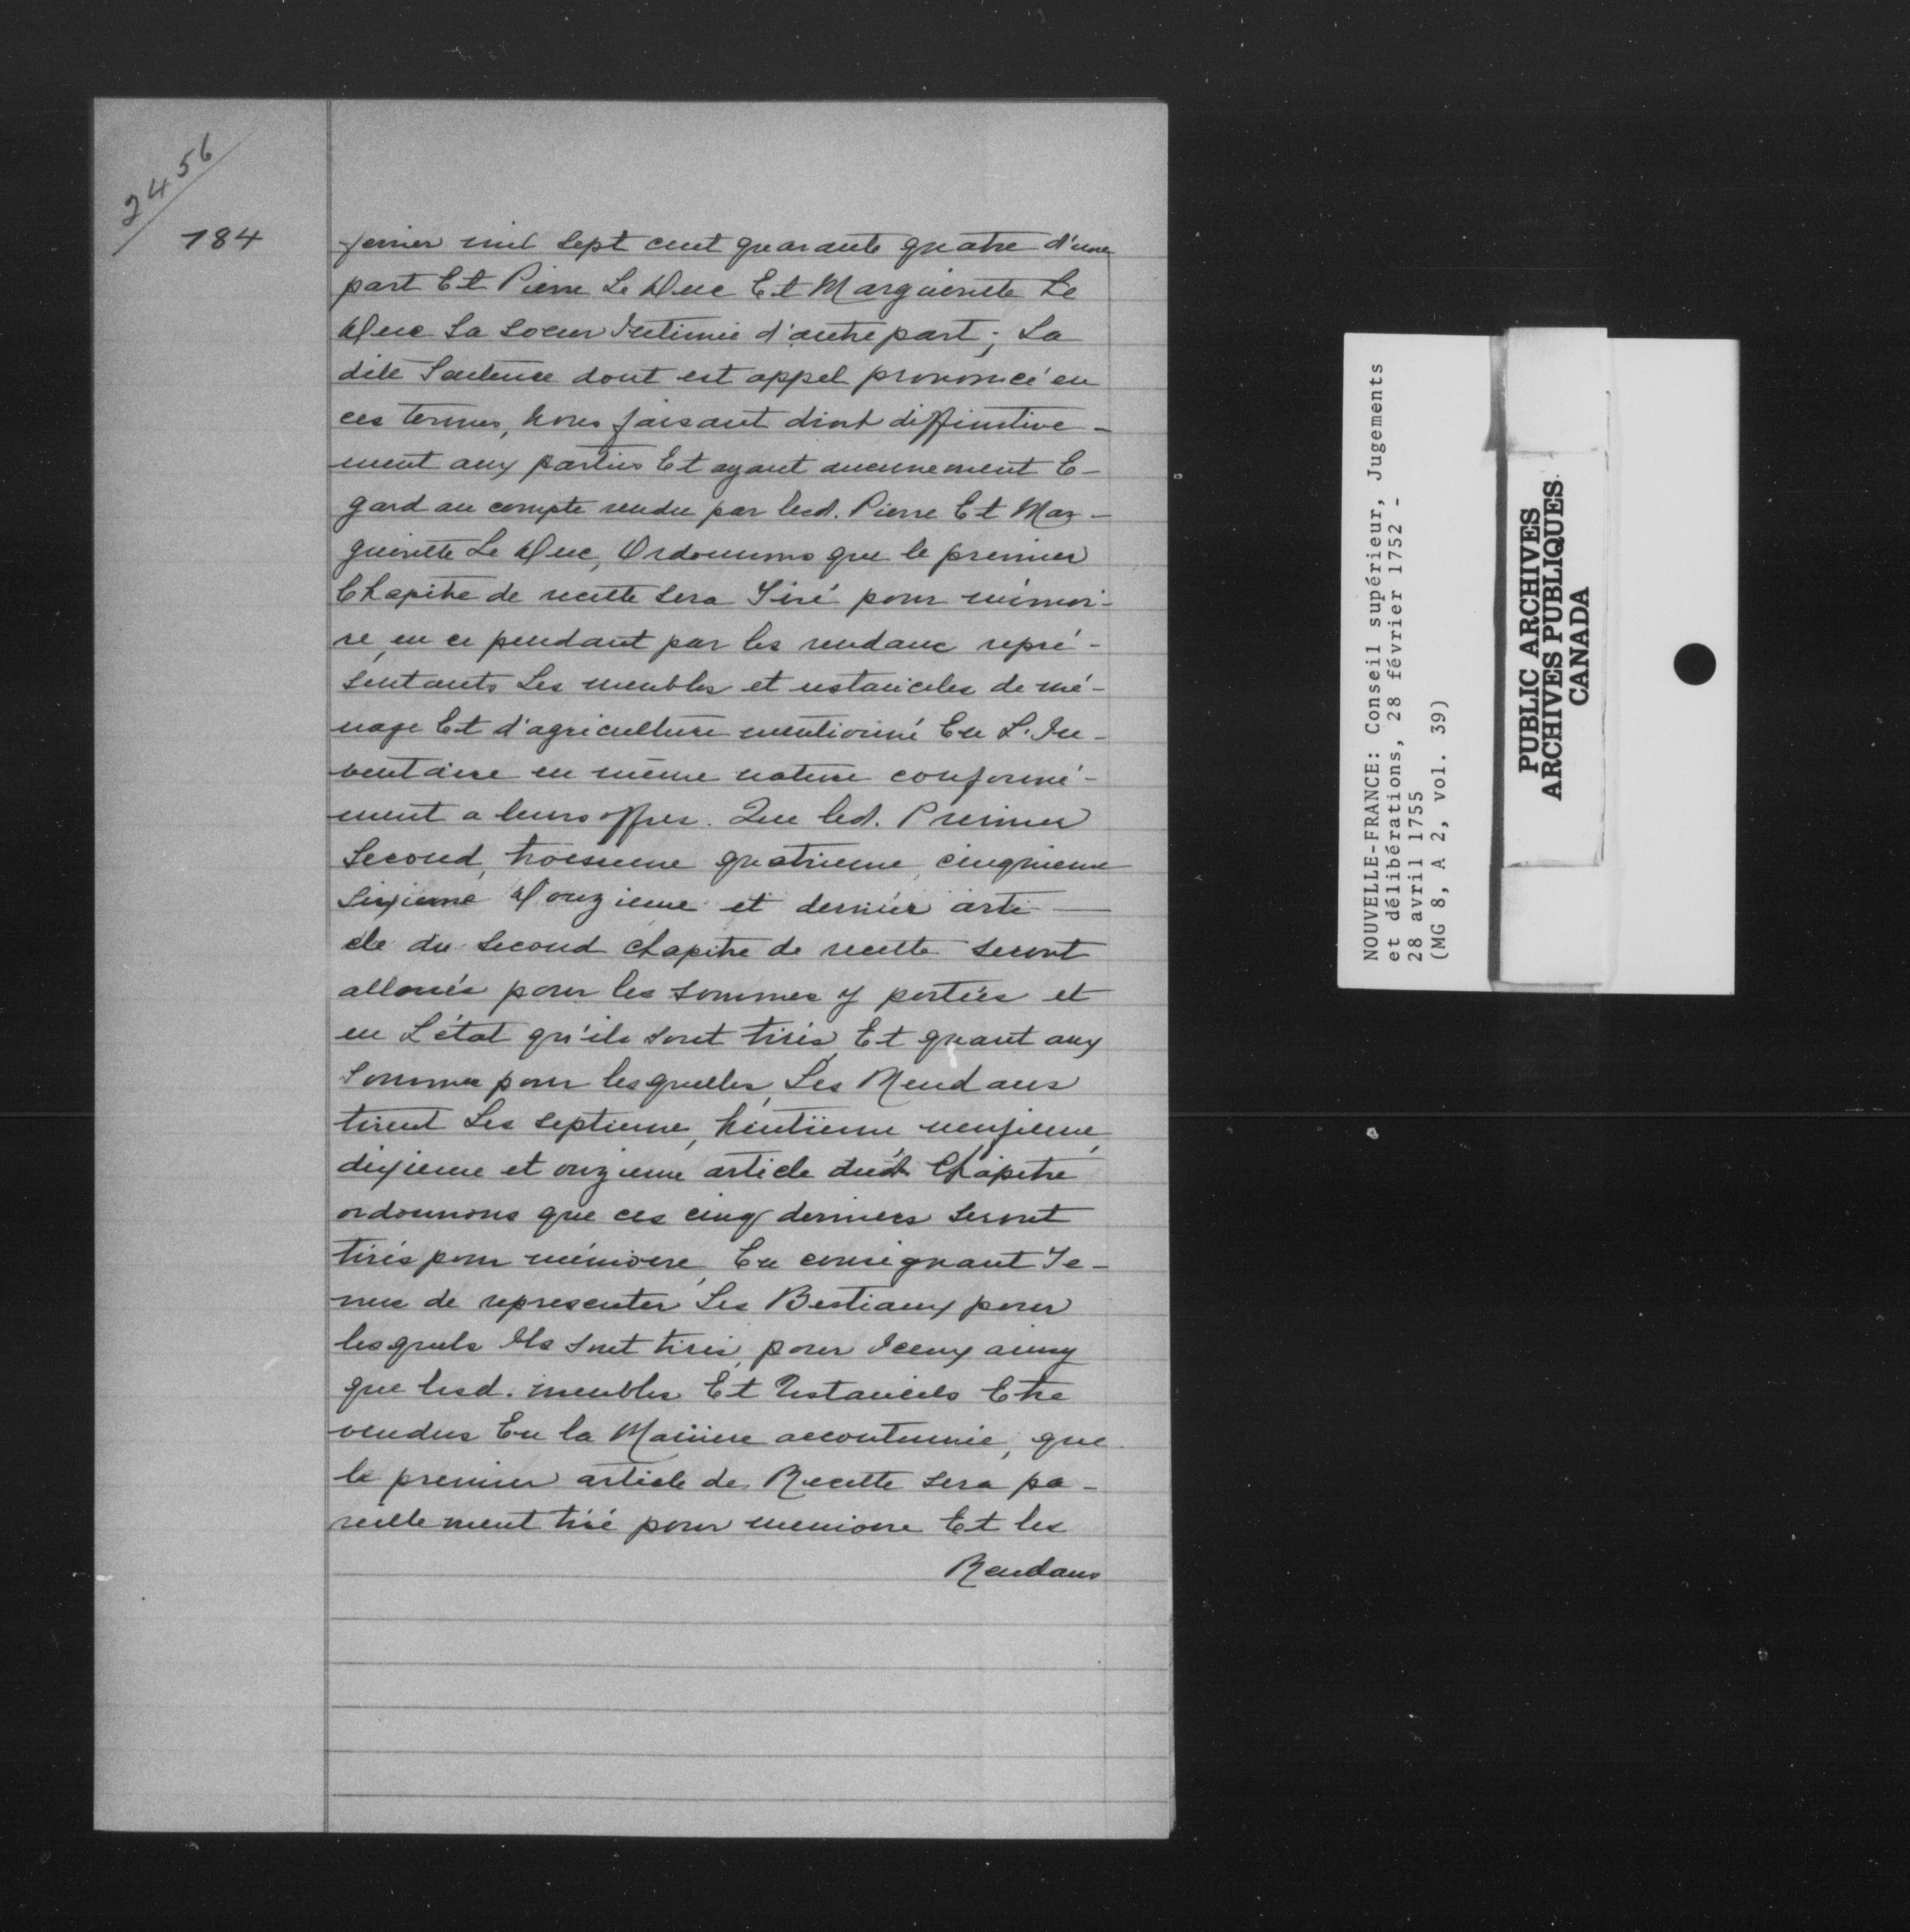 2456
184
ferier mil sept cent quarante quatre d'une
part Et Pierre Le Duc Et Marguerite Le
Duc Sa Soeur Intimée d'autre part; La
dite Sentence dont est appel prononcé en
ces termes, nous faisant droit diffinitive-
ment aux parties Et ayant aucunement E-
gard au compte rendu par lesd. Pierre Et Mar-
guerite Le Duc, Ordonnons que le premier
Chapitre de recette sera Tiré pour mémoi-
re, en ce pendant par les rendans repré-
sentants Les meubles et ustanciles de mé-
nage Et d'agriculture mentionné En L'In-
ventaire en même nature conformé-
ment a leurs offres. Que led. Premier
Second, troisieme quatrieme, cinquieme
Sixieme Douzieme et dernier arti-
cle du Second chapitre de recette seront
alloués pour les sommes y portées et
en L'état qu'ils sont tirés, Et quant aux
Sommes pour lesquelles, Les Rendans
tirent Les septieme, huitieme neufieme,
dixieme et onzieme article dud. Chapitre
ordonnons que ces cinq derniers seront
tirés pour mémoire, En consignant Te-
nue de representer Les Bestiaux pour
lesquels Ils sont tirés, pour Iceux ainsy
que lesd. meubles Et Ustanciels Etre
vendus En la Maniere accoutumée, que
le premier article de Recette sera pa-
reillement tiré pour memoire Et les
Rendans
NOUVELLE-FRANCE: Conseil supérieur, Jugements
et délibérations, 28 février 1752 -
28 avril 1755
(MG 8, A 2, vol. 39)
PUBLIC ARCHIVES
ARCHIVES PUBLIQUES
CANADA